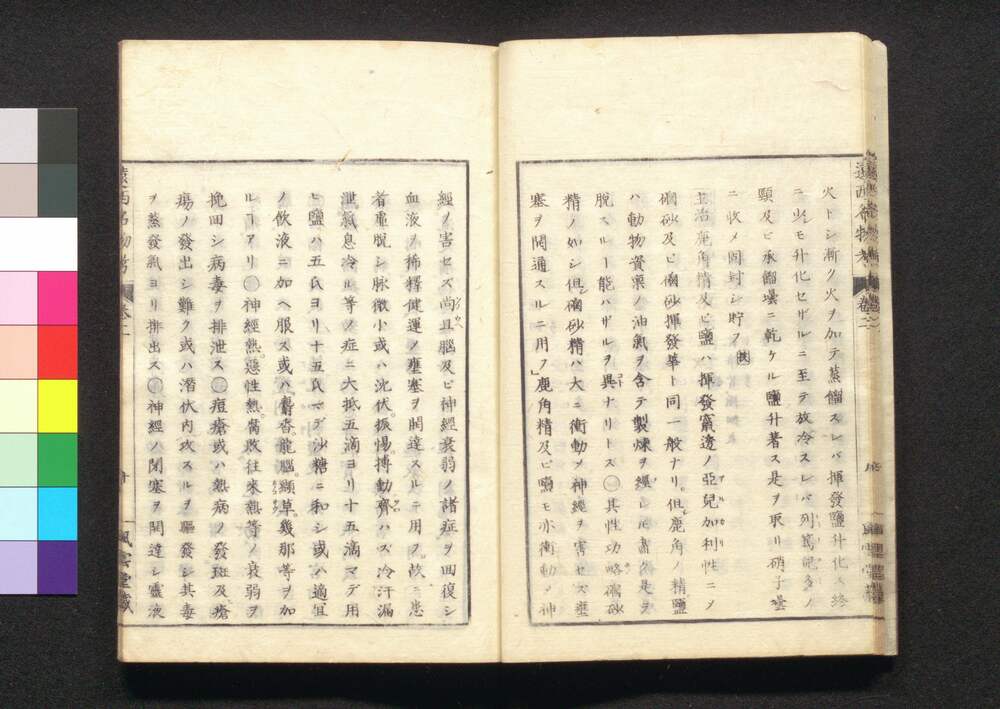 火トシ漸ク火ヲ加テ蒸餾スレバ揮發鹽升化ス終
ニ些モ升化セザルニ至テ放冷スレバ列篤爾多ノ
頸及ビ承餾壜ニ乾ケル鹽升著ス是ヲ取リ硝子壜
ニ收メ固封シ貯フ
主治鹿角精及ビ鹽ハ揮發竄透ノ亞兒加利性ニメ
磠砂及ビ磠砂揮發華ト同一般ナリ但鹿角ノ精鹽
ハ動物資稟ノ油氣ヲ含テ製煉ヲ經レ𪜈肅久是ヲ
脱スルヿ能ハザルヲ異ナリトス○其性功略磠砂
精ノ如シ但磠砂精ハ大ニ衝動メ神經ヲ害セズ壅
塞ヲ開通スルニ用フ」鹿角精及ビ鹽モ亦衝動メ神
經ノ害セズ尚且腦及ビ神經衰弱ノ諸症ヲ回復シ
血液ヲ稀釋健運ノ壅塞ヲ開達スルニ用フ故ニ患
者虛脱シ脉微小或ハ沈伏振惕搏動齊ハズ冷汗漏
泄氣息冷ル等ノ症ニ大抵五滴ヨリ十五滴マデ用
ヒ鹽ハ五氏ヨリ十五氏マデ沙糖ニ和シ或ハ適宜
ノ飲液ニ加ヘ服ス或ハ麝香龍腦纈草幾那等ヲ加
ルヿアリ○神經熱惡性熱腐敗往來熱等ノ衰弱ヲ
挽回シ病毒ヲ排泄ス○痘瘡或ハ熱病ノ發斑及瘡
瘍ノ發出シ難ク或ハ潛伏内攻スルヲ驅發シ其毒
ヲ蒸發氣ヨリ排出ス○神經ノ閉塞ヲ開達シ靈液
遠西名物考
卷二
十
風雲堂藏